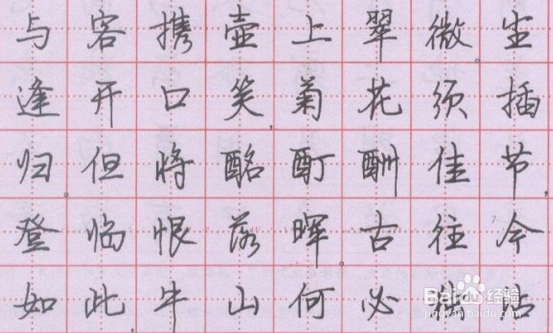 与客携壶上翠微。尘
逢开口笑,菊花须插
归。但将酩酊酬佳节,
登临恨落晖。古往今
如此,牛山何必独沾